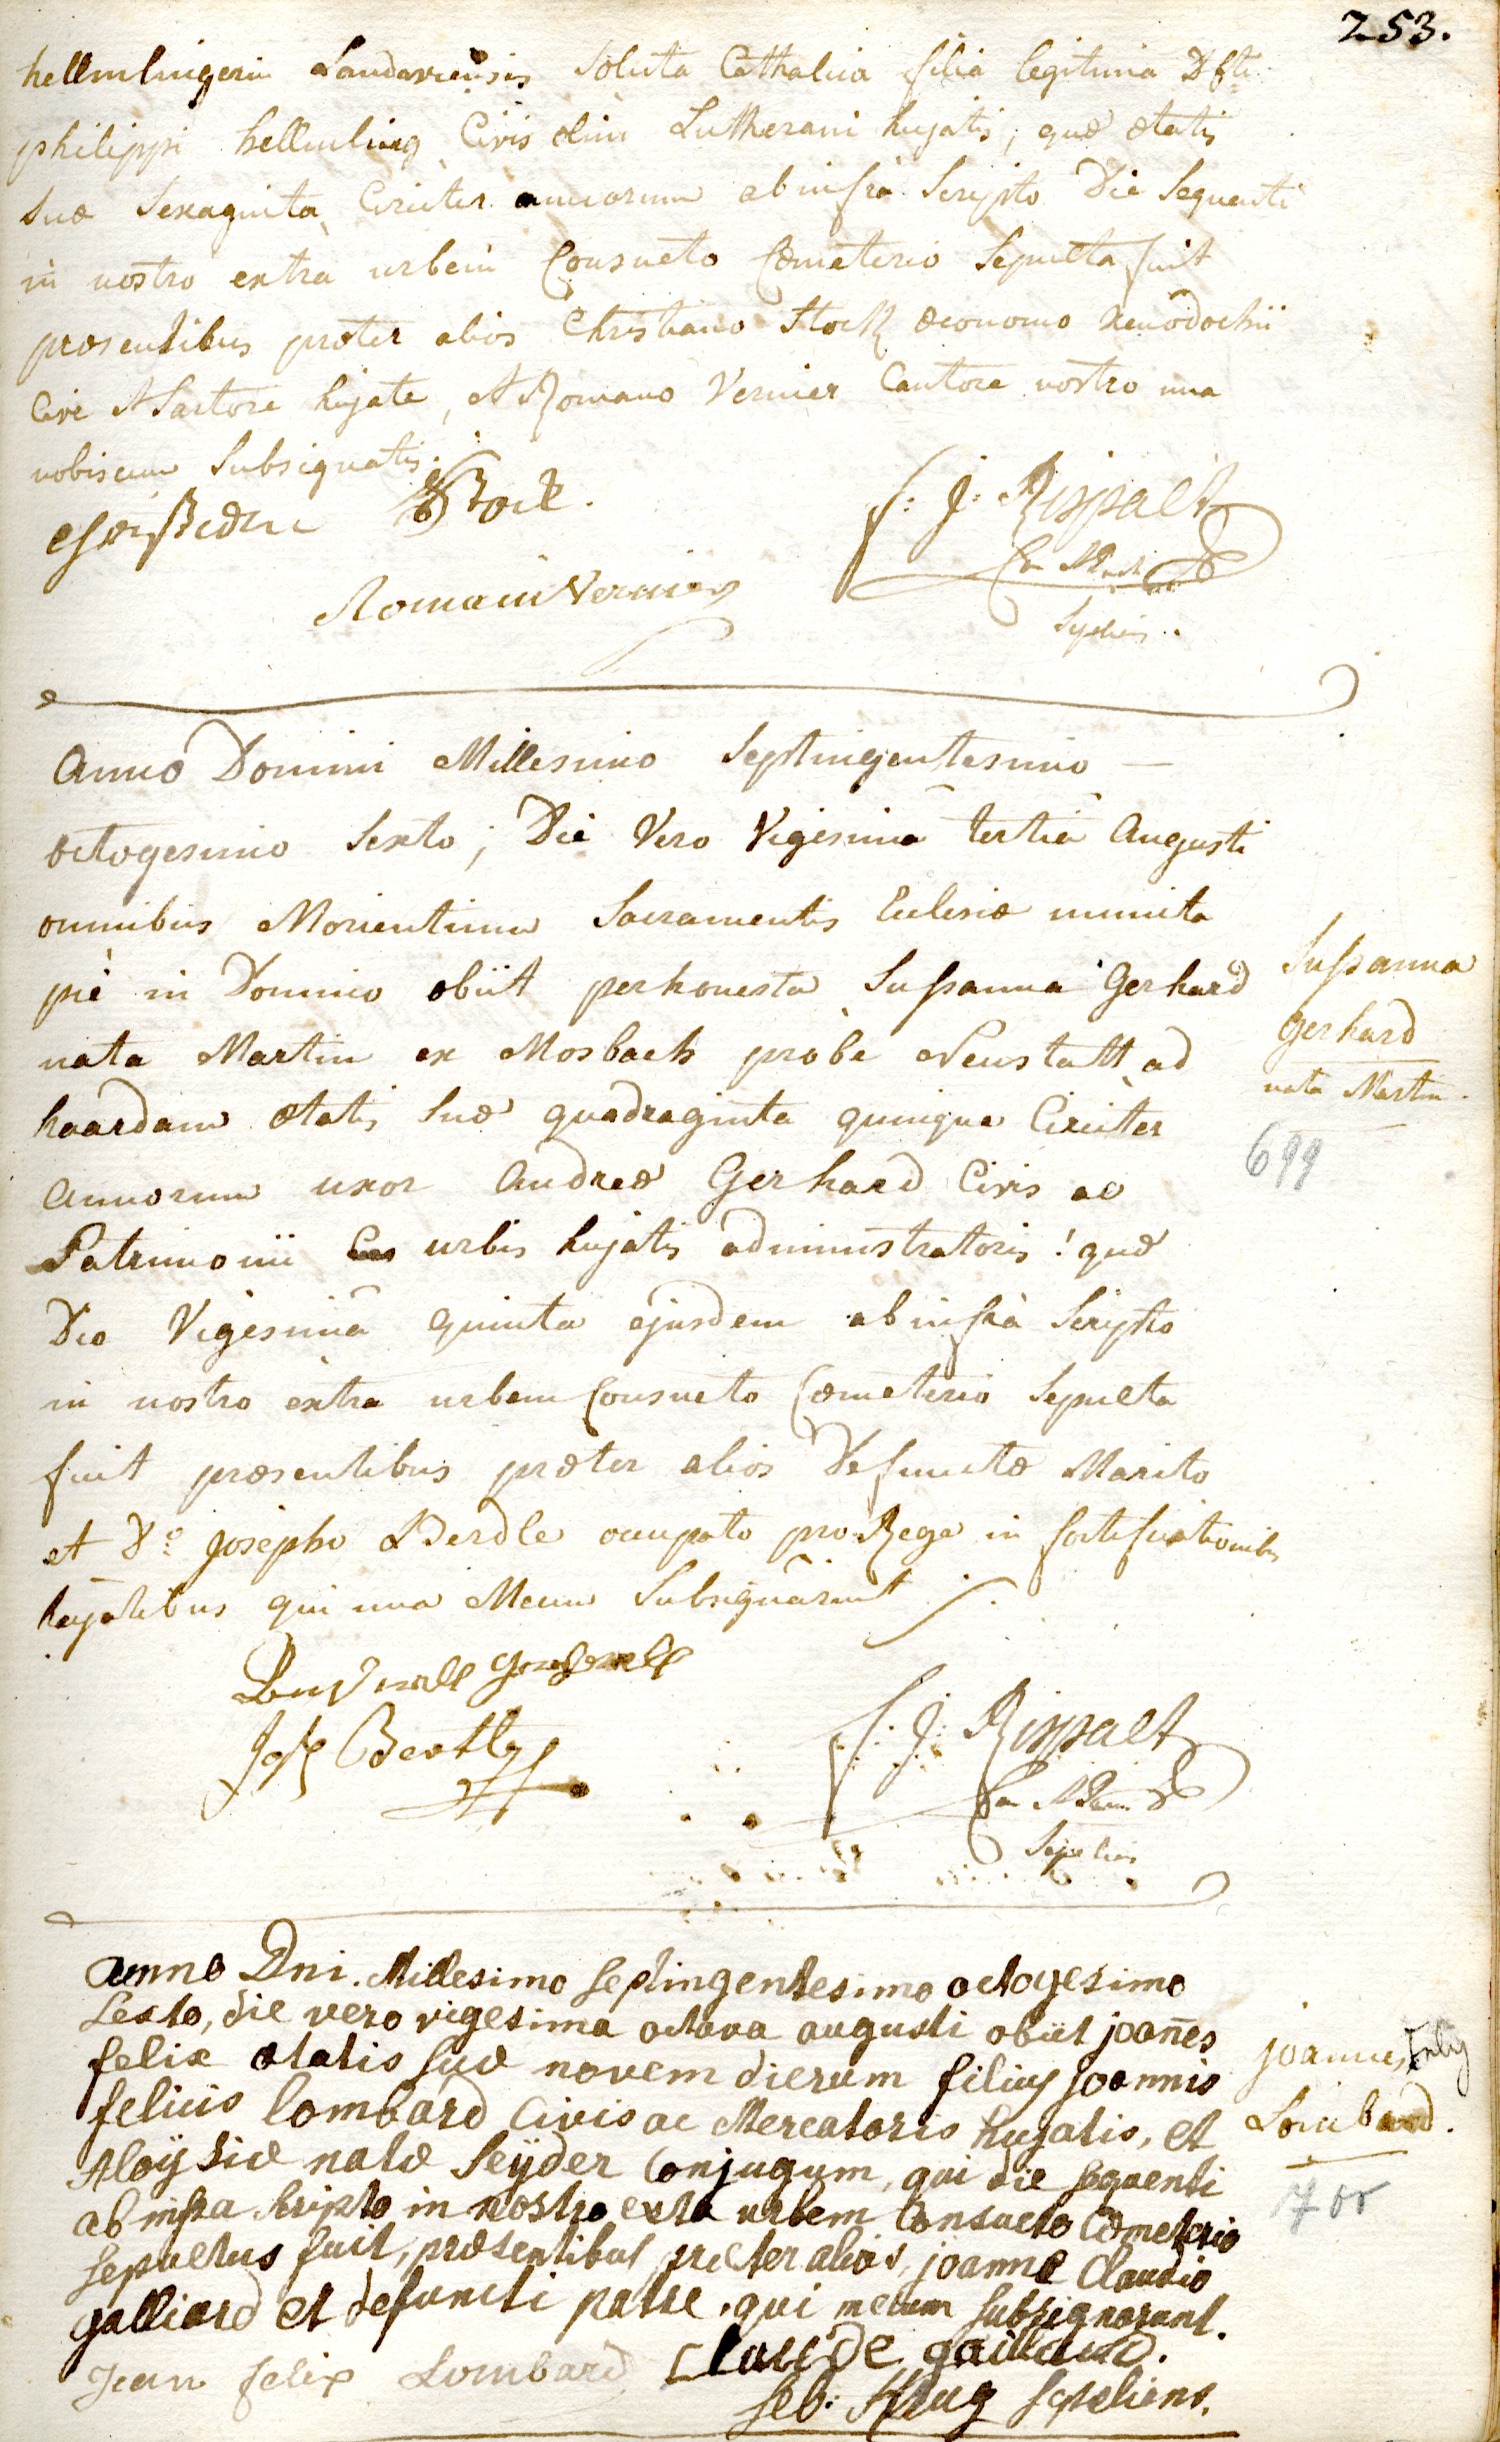 253.
hellmlingerin Landaviensis soluta Catholica filia legitima Dfti
philippi hellmling Civis olim Lutherani hujatis, quæ ætatis
suæ sexaginta Circiter annorum ab infrà scripto Die sequenti
in nostro extrà urbem Consueto Cœmeterio sepulta fuit
præsentibus præter alios Christiano Stock œconomo Xenodochii
Cive & Sartore hujate, & Romano Vernier Cantore nostro una
nobiscum subsignatis.
Stock.
F: J: Rippalt
Romain Vernier
Sepeliens.
Anno Domini Millesimo Septingentesimo —
octogesimo Sexto; Die Vero Vigesima tertiâ Augusti
omnibus Morientium Sacramentis Ecclesiæ munita
piè in Domino obiit perhonesta Sussanna Gerhard
nata Martin ex Mosbach pròbe Neustatt ad
haardam ætatis suæ quadraginta quinque Circiter
Annorum uxor Andreæ Gerhard Civis ac
Patrimonii urbis hujatis administratoris! quæ
Die Vigesimâ quinta ejusdem ab infrà Scripto
in nostro extra urbem Consueto Cœmeterio sepulta
fuit præsentibus præter alios Defunctæ Marito
et Do: Josepho Berdle occupato pro Rege in fortificationibus
hujatibus qui una Mecum Subsignârunt ./.
Sussanna
Gerhard
nata Martin.
699
Jos Bertly
F: J: Rippalt
Sepeliens
Anno Dni. Millesimo septingentesimo octogesimo
Sexto, die vero vigesima octava augusti obiit joañes
felix ætatis suæ novem dierum filius Joannis
felicis Lombard Civis ac Mercatoris hujatis, et
Aloysiæ natæ Seÿder Conjugum, qui die sequenti
ab infra scripto in nostro extra urbem Consueto Cœmeterio
sepultus fuit, præsentibus præter alios, joanne Claudio
galliard et defuncti patre, qui mecum subsignarunt.
joannes Felix
Lombard.
700
Jean felix Lombard Claude gaillard.
Seb: Krug sepeliens.